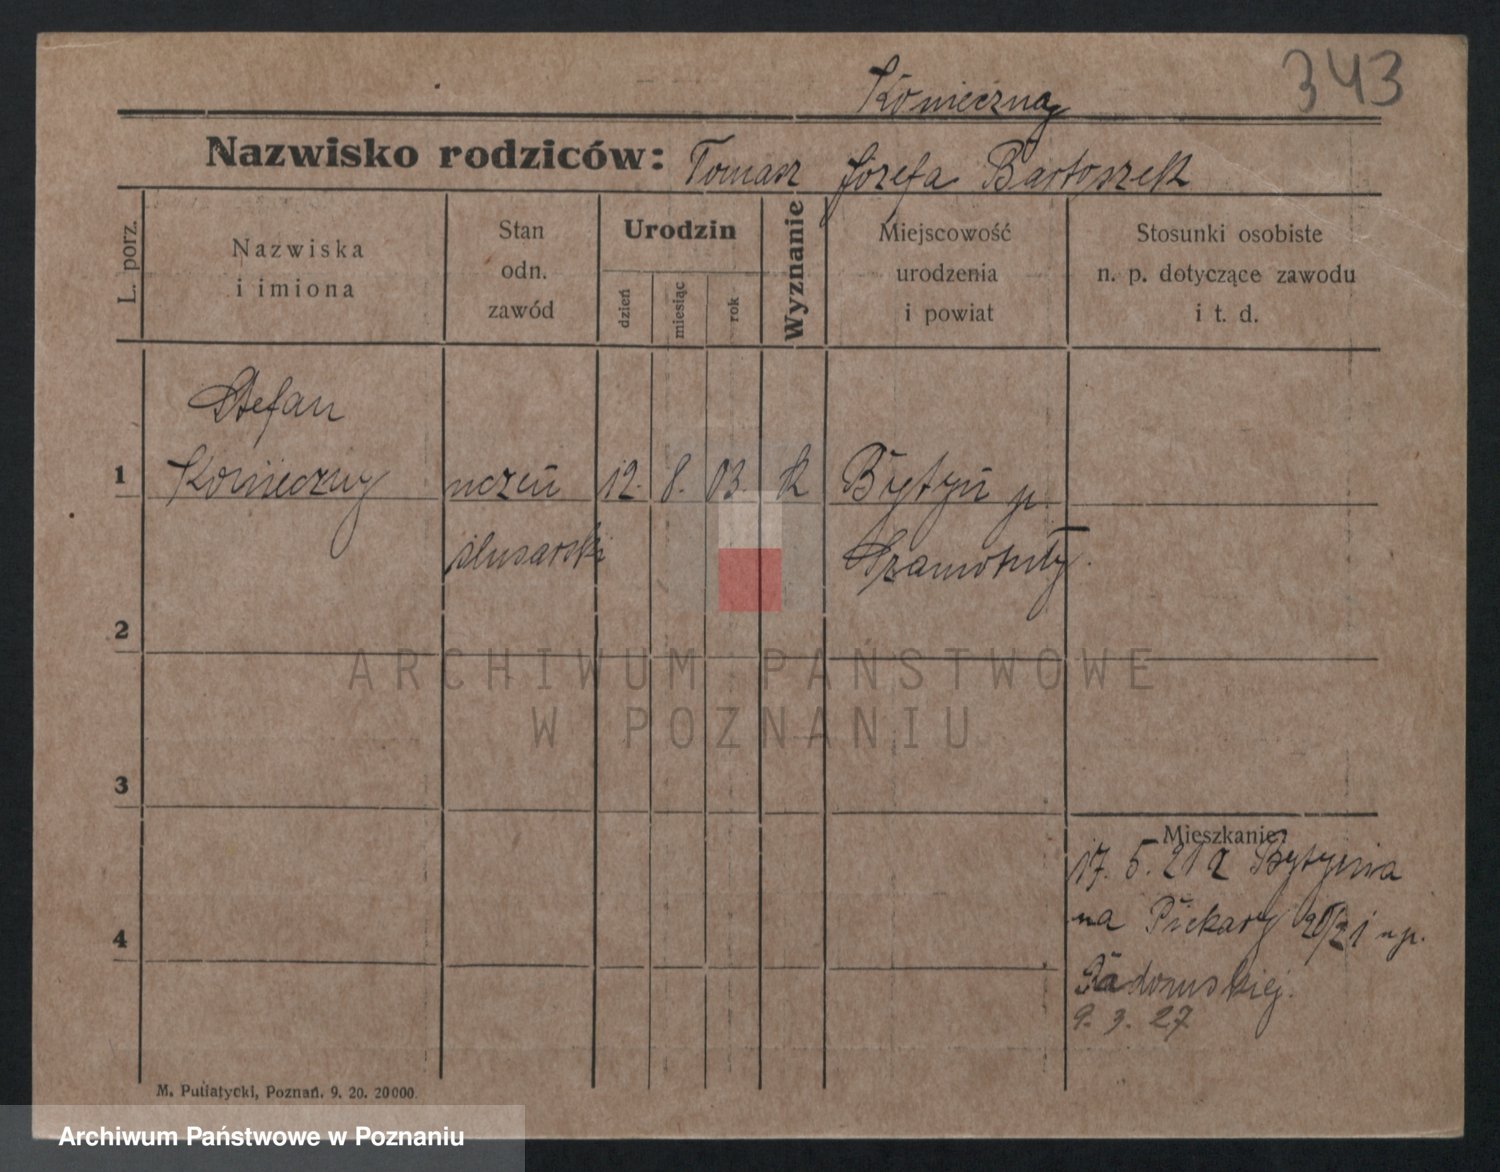 343
Konieczny
Nazwisko rodziców: Tomasz Józefa Bartoszek
L. porz.
Nazwiska
i imiona
Stan
odn.
zawód
Urodzin
dzień
miesiąc
rok
Wyznanie
Miejscowość
urodzenia
i powiat
Stosunki osobiste
n. p. dotyczące zawodu
i t. d.
Stefan
1 Konieczny uczeń 12. 8. 03. k Bytyń p.
ślusarski Szamotuły.
2
ARCHIWUM PAŃSTWOWE
W POZNANIU
3
Mieszkanie:
17. 5. 21 z Bytynia
4 na Piekary 20/21 u p.
Radomskiej.
9. 3. 27
M. Putiatycki, Poznań. 9. 20. 20000.
Archiwum Państwowe w Poznaniu